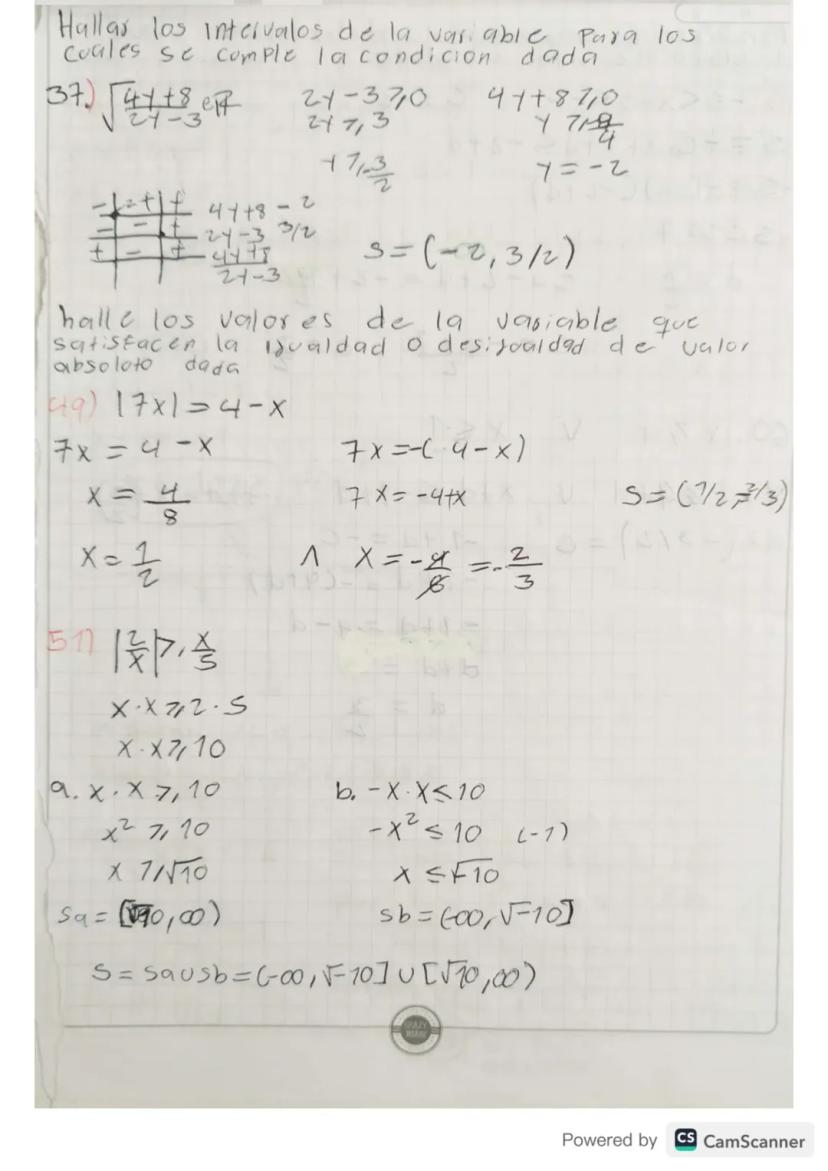 Hallar los intervalos de la variable para los
cuales se cumple la condicion dada
37.) √(4y+8 / 2y-3) eℝ    2y-3≥0    4y+8≥0
2y≥3    y≥-8/4
y≥3/2    y=-2
- | -+ | + 4y+8 -2
- | - | + 2y-3 3/2
+ | - | + 4y+8 / 2y-3
S=(-2, 3/2)
halle los valores de la variable que
satisfacen la igualdad o desigualdad de valor
absoloto dada
49) |7x|=4-x
7x=4-x    7x=-(4-x)
x=4/8    7x=-4+x    S=(1/2, -2/3)
x=1/2    ∧    x=-4/6=-2/3
51) |2/x|≥x/5
x·x≥2·5
x·x≥10
a. x·x≥10    b. -x·x≤10
x²≥10    -x²≤10 (-1)
x≥√10    x≤√-10
Sa=[√10,∞)    Sb=(-∞,√-10]
S=SaUSb=(-∞,√-10]U[√10,∞)
Powered by CS CamScanner